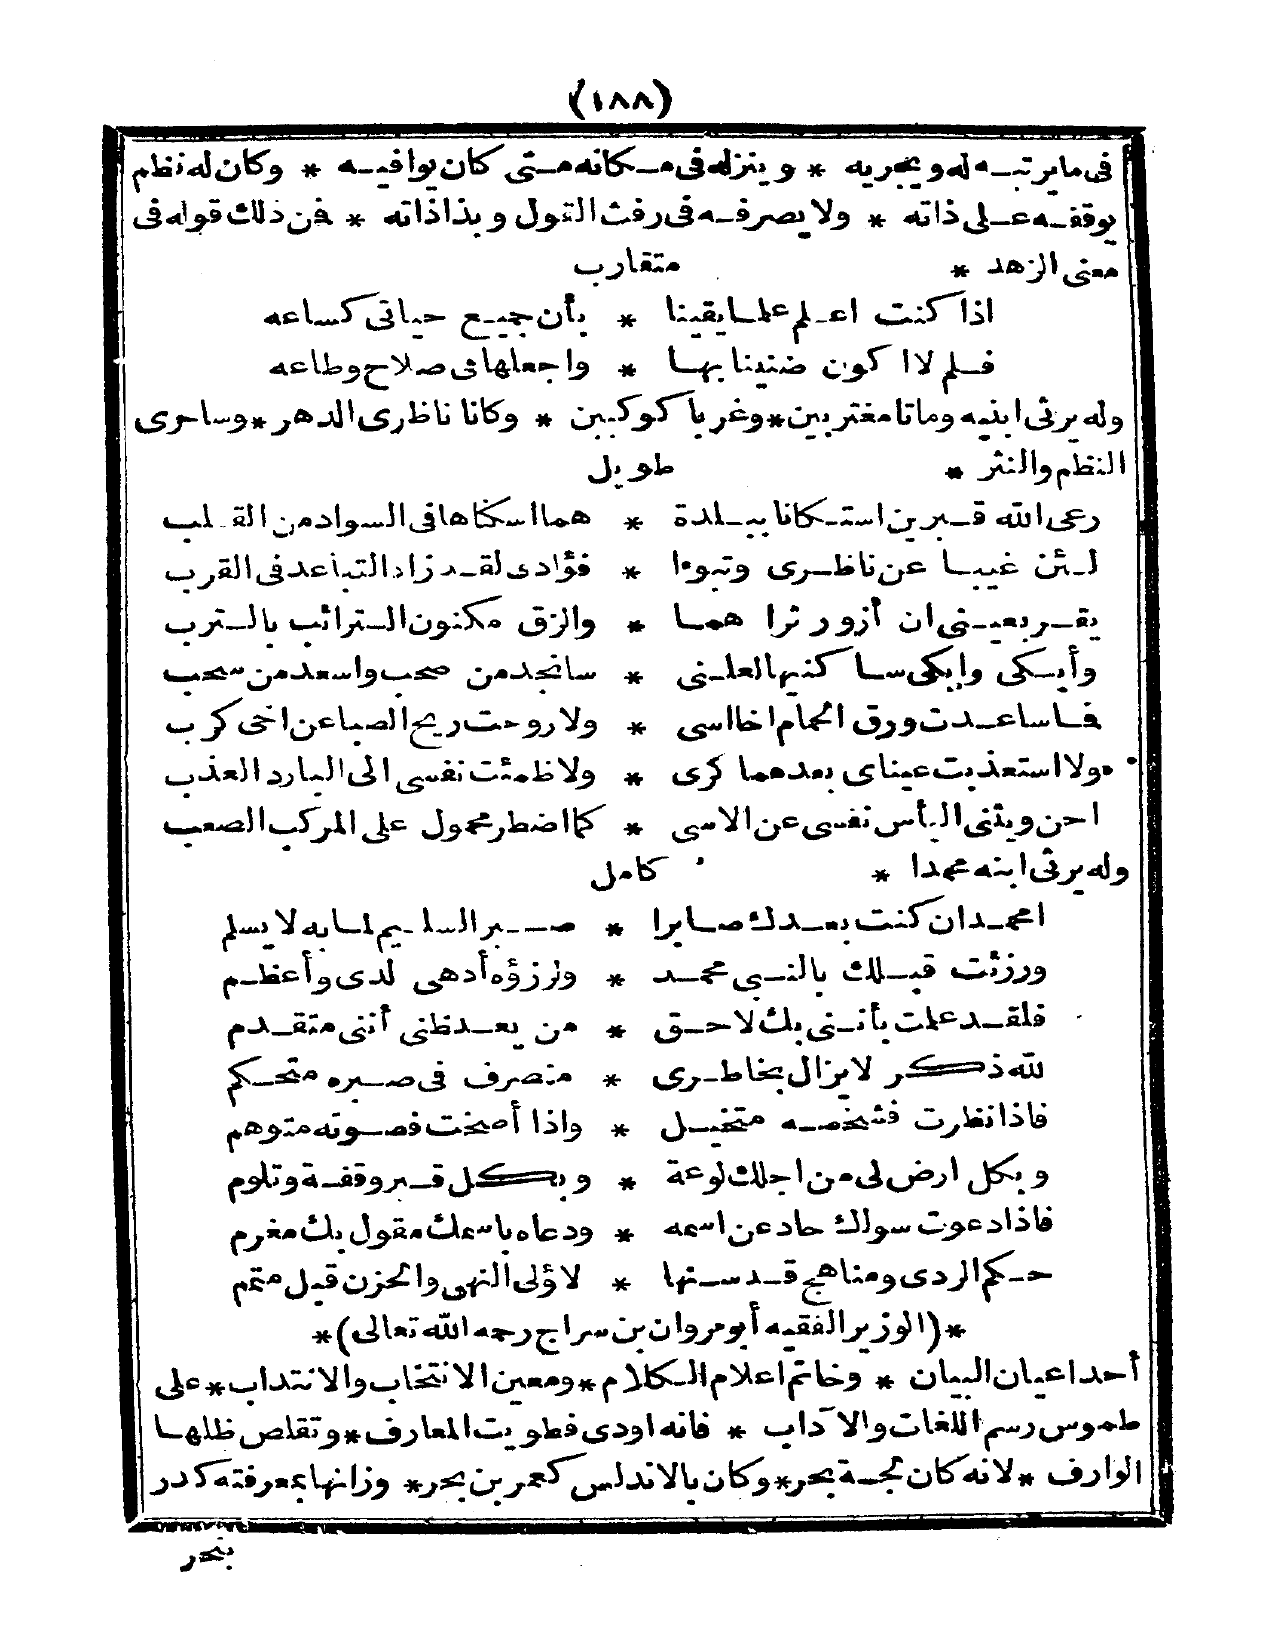 (١٨٨)
فى ما يرتبه له ويجريه * وينزله فى مكانه متى كان يوافيه * وكان له نظم
يوقفه على ذاته * ولا يصرفه فى رفث القول وبذاذاته * فن ذلك قوله فى
معنى الزهد * متقارب
اذا كنت اعلم علما يقينا * بأن جميع حياتى كساعه
فلم لا اكون ضنينا بها * واجعلها فى صلاح وطاعه
وله يرثى ابنيه وماتا مغتربين * وغربا كوكبين * وكانا ناظرى الدهر * وساحرى
النظم والنثر * طويل
رعى الله قبرين استكانا ببلدة * هما اسكاها فى السواد من القلب
لئن غيبا عن ناظرى وتبوءا * فؤادى لقد زاد التباعد فى القرب
يقر بعينى ان أزور ثراهما * والزق مكنون الترائب بالترب
وأبكى وابكى ساكنيها لعلنى * سانجد من صحب واسعد من سحب
فا ساعدت ورق الحمام اخا اسى * ولا روحت ريح الصبا عن اخى كرب
ولا استعذبت عيناى بعدهما كرى * ولا ظمئت نفسى الى البارد العذب
احن ويثنى اليأس نفسى عن الاسى * كما اضطر محمول على المركب الصعب
وله يرثى ابنه محمدا * كامل
امحمد ان كنت بعدك صابرا * صبر السليم لما به لا يسلم
ورزئت قبلك بالنبى محمد * ولرزؤه أدهى لدى وأعظم
فلقد علمت بأننى بك لاحق * من بعد ظنى أننى متقدم
لله ذكر لا يزال بخاطرى * متصرف فى صبره متحكم
فاذا نظرت فشخصه متخيل * واذا أصخت فصوته متوهم
وبكل ارض لى من اجلك لوعة * وبكل قبر وقفة وتلوم
فاذا دعوت سواك حاد عن اسمه * ودعاه باسمك مقول بك مغرم
حكم الردى ومناهج قد سنها * لاؤلى النهى والحزن قبل متمم
*(الوزير الفقيه أبو مروان بن سراج رحمه الله تعالى)*
أحد اعيان البيان * وخاتم اعلام الكلام * ومعين الانتخاب والانتداب * على
طموس رسم اللغات والآداب * فانه اودى فطويت المعارف * وتقلص ظلها
الوارف * لانه كان لجة بحر * وكان بالاندلس كعمر بن بحر * وزانها بمعرفته كدر
بنحر